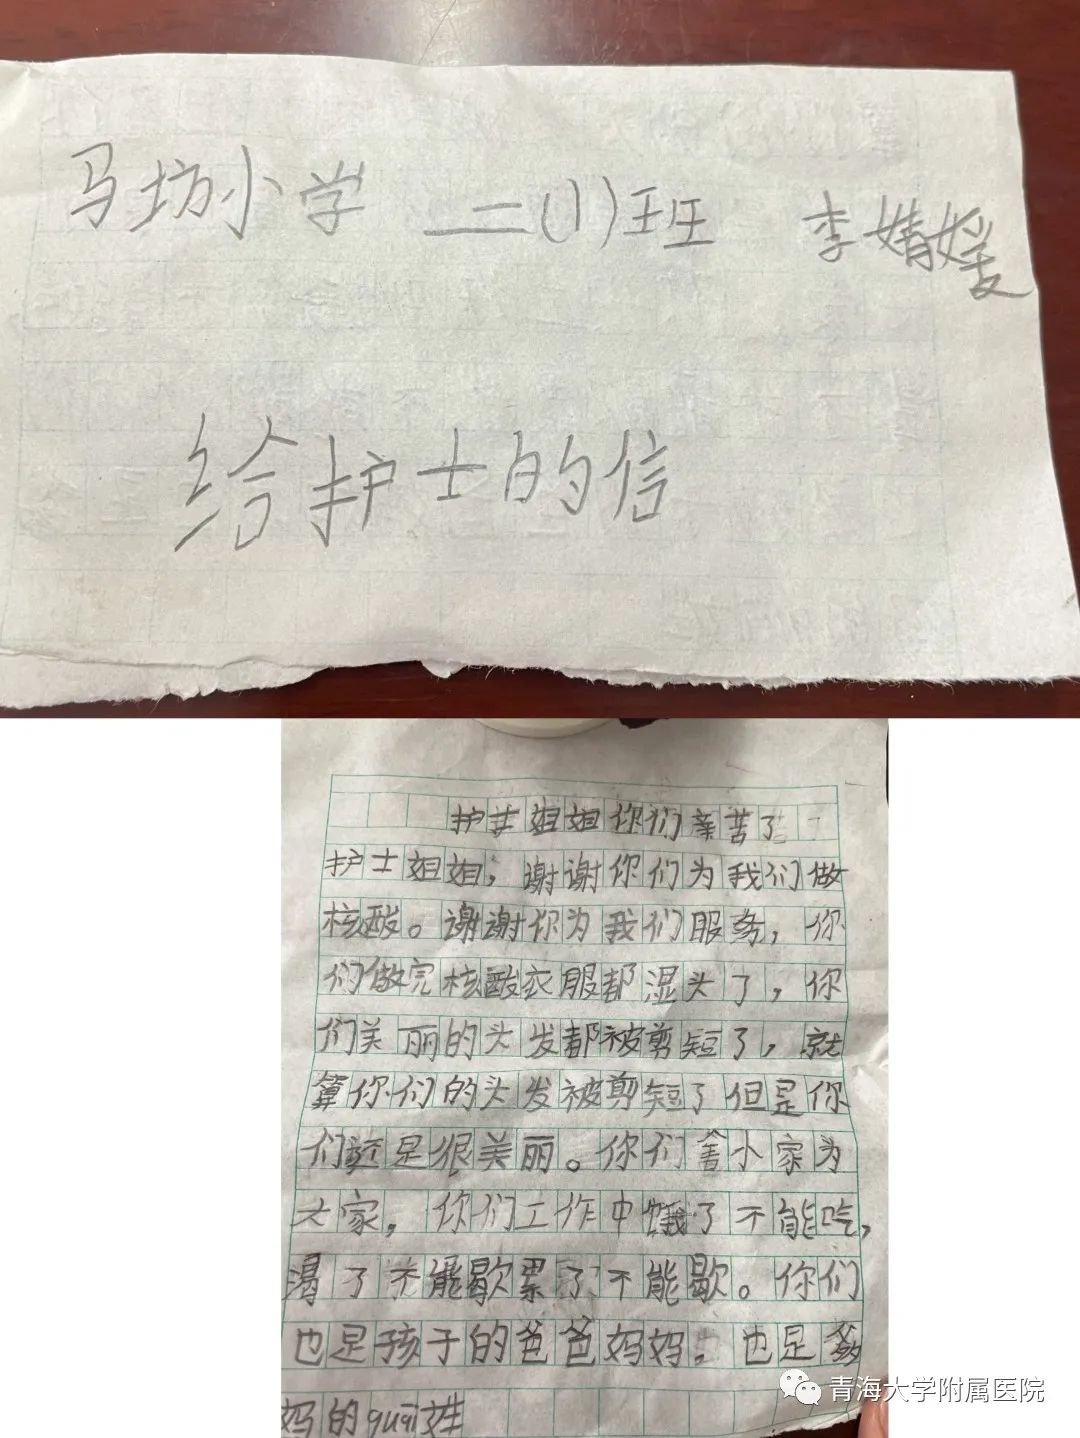 马坊小学 二(1)班 李婧媛
给护士的信
护士姐姐你们亲苦了
护士姐姐，谢谢你们为我们做
核酸。谢谢你为我们服务，你
们做完核酸衣服都湿头了，你
们美丽的头发都被剪短了，就
算你们的头发被剪短了但是你
们还是很美丽。你们舍小家为
大家，你们工作中饿了不能吃，
渴了不能歇累了不能歇。你们
也是孩子的爸爸妈妈。也是爸
妈的guāi
青海大学附属医院